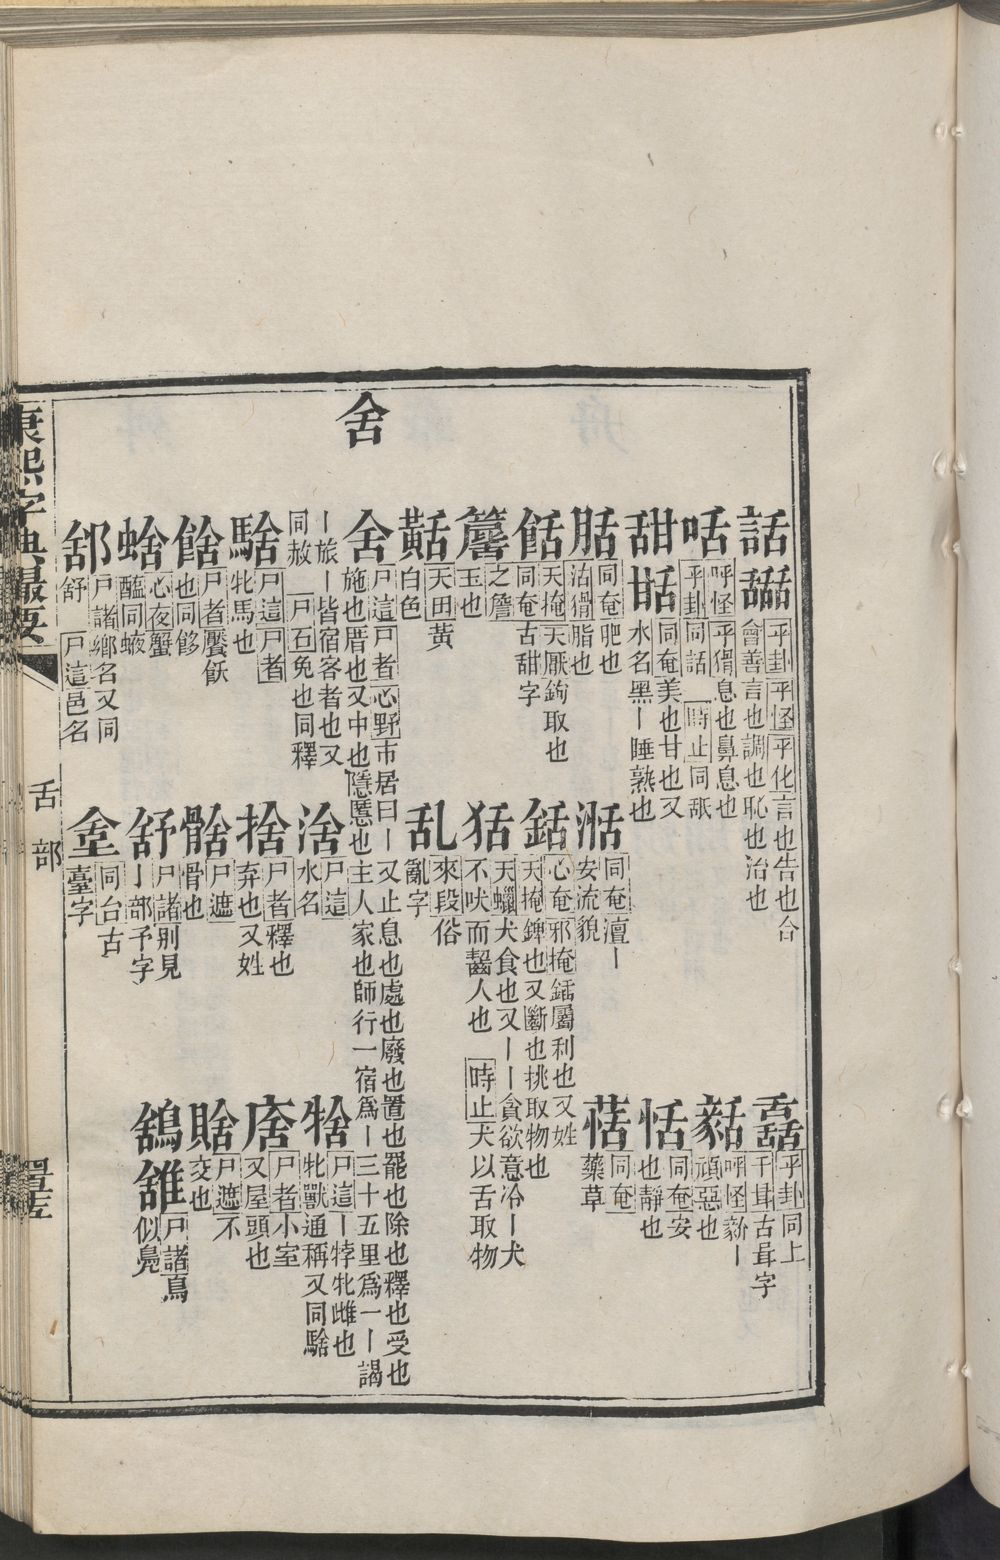 舍
話 𧮩 平卦平怪平化言也告也合
會善言也調也恥也治也
咶 呼怪平猾息也鼻息也
平卦同話 時止同舐
甜 甛 同奄美也甘也又
水名黑丨睡熟也
䏦 同奄𦚯也
沽猾脂也
餂 天掩天厭鉤取也
同奄古甜字
之簷
玉也
天田黃
白色
舍 尸這尸者心野市居曰丨又止息也處也廢也置也罷也除也釋也受也
施也厝也又中也隱慝也主人家也師行一宿爲丨三十五里爲一丨謁
丨旅丨皆宿客者也又
同赦 尸石免也同釋
騇 尸這尸者
牝馬也
尸者饜飫
也同飹
蛥 心夜蟹
醢同𧍪
𨛭 尸諸鄉名又同
舒 尸這邑名
湉 同奄澶丨
安流貌
銛 心奄邪掩鍤屬利也又姓
天掩錍也又斷也挑取物也
狧 天蠟犬食也又丨丨貪欲意冷丨犬
不吠而齧人也 時止犬以舌取物
乱 來段俗
亂字
涻 尸這
水名
捨 尸者釋也
弃也又姓
尸遮
骨也
舒 尸諸別見
丨部予字
同台古
臺字
平卦同上
千耳古㬰字
呼怪䜸丨
頑惡也
恬 同奄安
也靜也
菾 同奄
藥草
尸這丨牸牝雌也
牝獸通稱又同騇
尸者小室
又屋頭也
賒 尸遮不
交也
尸諸鳥
似鳧
康熙字典最要
舌部